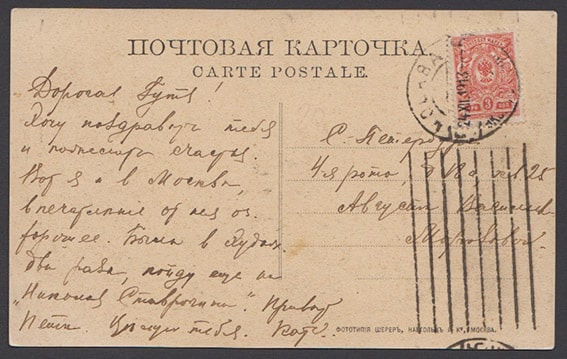 ПОЧТОВАЯ КАРТОЧКА.
CARTE POSTALE.
Дорогая Гутя!
Хочу поздравить тебя
и пожелать счастья.
Вот я и в Москве,
впечатление от нея
хорошее. Была в Худож.
два раза, пойду еще на
"Николая Ставрогина". Привет
Пете. Целую тебя. Катя.
С. Петерб
4я рота, д 18 кв 25
Августе Васильев
Морозовой
МОСКВА
24 XII 1913
3
ФОТОТИПІЯ ШЕРЕРЪ, НАБГОЛЬЦЪ и К°, МОСКВА.